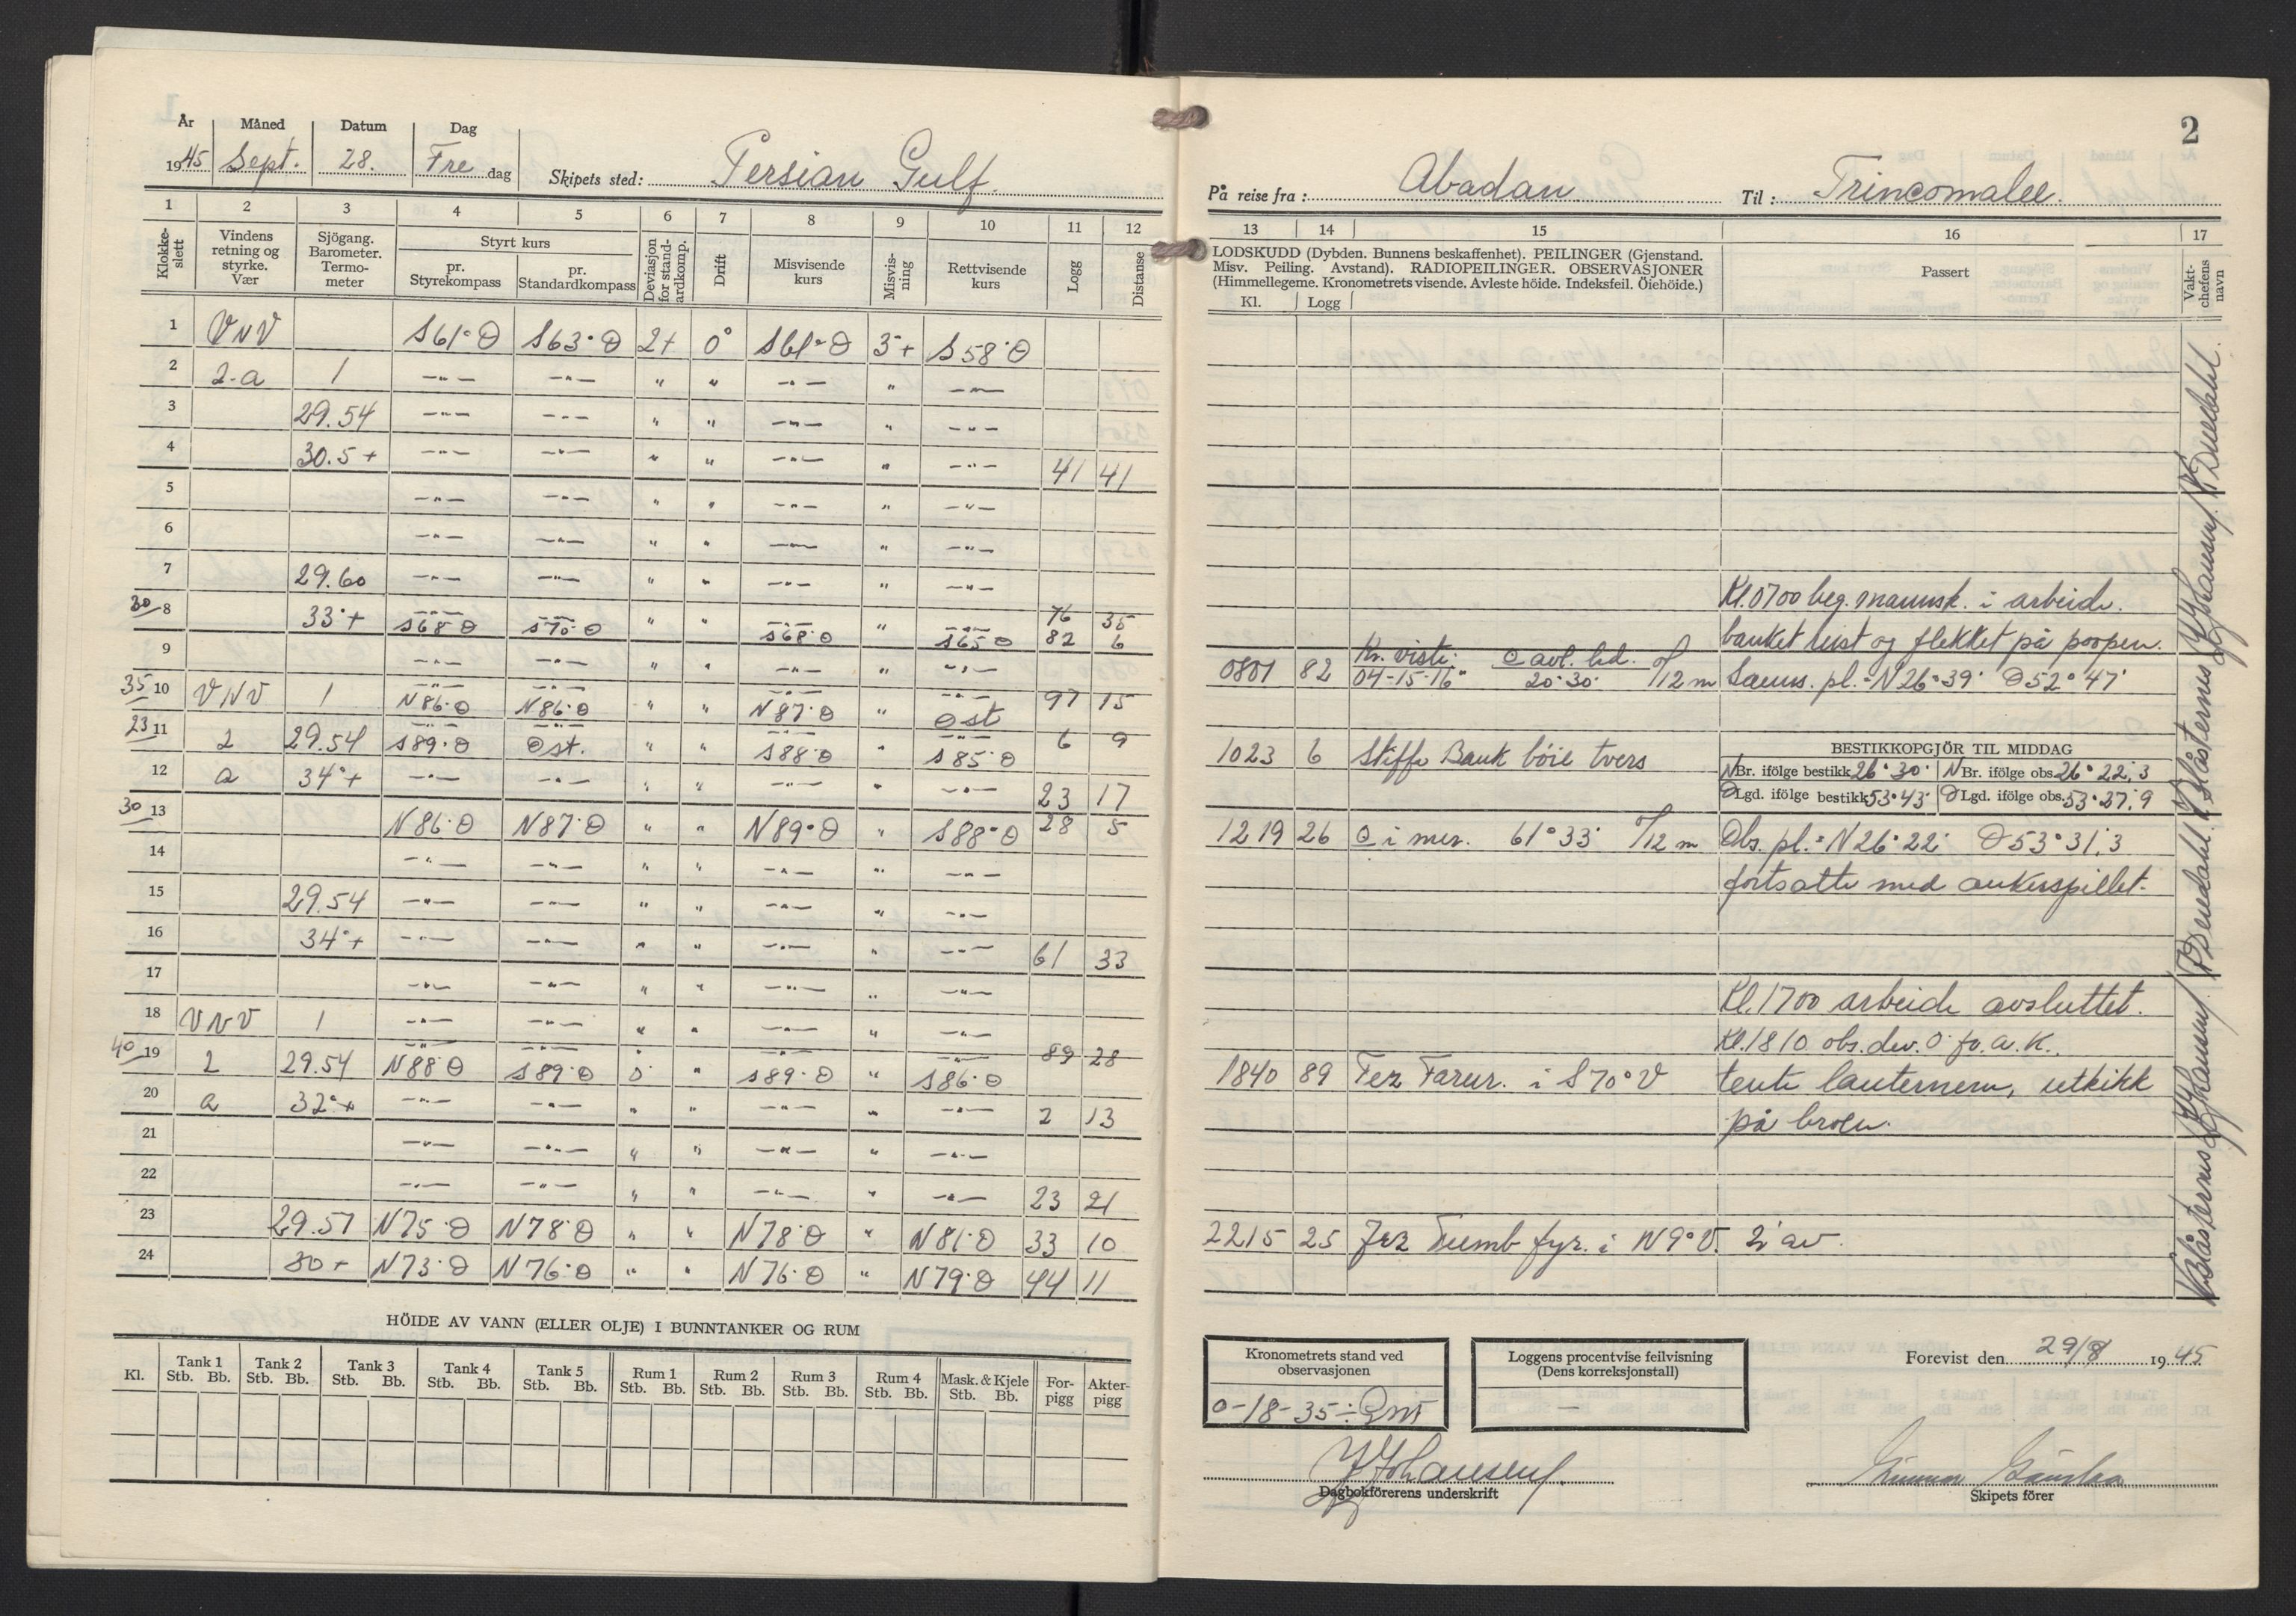 År Måned Datum Dag
1945 Sept. 28. Fre dag Skipets sted: Persian Gulf.
1 2 3 4 5 6 7 8 9 10 11 12
Klokkeslett Vindens retning og styrke. Vær Sjögang. Barometer. Termometer Styrt kurs pr. Styrekompass pr. Standardkompass Deviasjon for standardkomp. Drift Misvisende kurs Misvisning Rettvisende kurs Logg Distanse
1 VNV S61°Ø S63°Ø 2+ 0° S61°Ø 3+ S58°Ø
2 2-a 1 -"- -"- " " -"- " -"-
3 29.54 -"- -"- " " -"- " -"-
4 30.5+ -"- -"- " " -"- " -"- 41 41
5 -"- -"- " " -"- " -"-
6 -"- -"- " " -"- " -"-
7 29.60 -"- -"- " " -"- " -"-
-"- -"- -"- -"- 76 35
30/8 33°+ S68°Ø S70°Ø " " S68°Ø " S65°Ø 82 6
9 -"- -"- " " -"- " -"-
-"- -"- -"- -"-
35/10 VNV 1 N86°Ø N86°Ø " " N87°Ø " Øst 97 15
-"- -"- -"- -"-
23/11 2 29.54 S89°Ø Øst. " " S88°Ø " S85°Ø 6 9
12 a 34°+ -"- -"- " " -"- " -"- 23 17
30/13 N86°Ø N87°Ø " " N89°Ø " S88°Ø 28 5
14 -"- -"- " " -"- " -"-
15 29.54 -"- -"- " " -"- " -"-
16 34°+ -"- -"- " " -"- " -"- 61 33
17 -"- -"- " " -"- " -"-
18 VNV 1 -"- -"- " " -"- " -"-
-"- -"- -"- -"- 89 28
40/19 2 29.54 N88°Ø S89°Ø 0 " S89°Ø " S86°Ø
20 a 32°+ -"- -"- " " -"- " -"- 2 13
21 -"- -"- " " -"- " -"-
22 -"- -"- " " -"- " -"- 23 21
23 29.57 N75°Ø N78°Ø " " N78°Ø " N81°Ø 33 10
24 30+ N73°Ø N76°Ø " " N76°Ø " N79°Ø 44 11
HÖIDE AV VANN (ELLER OLJE) I BUNNTANKER OG RUM
Kl. Tank 1 Tank 2 Tank 3 Tank 4 Tank 5 Rum 1 Rum 2 Rum 3 Rum 4 Mask. & Kjele Forpigg Akterpigg
Stb. Bb. Stb. Bb. Stb. Bb. Stb. Bb. Stb. Bb. Stb. Bb. Stb. Bb. Stb. Bb. Stb. Bb. Stb. Bb.
2
På reise fra: Abadan Til: Trincomalee.
13 14 15 16 17
LODSKUDD (Dybden. Bunnens beskaffenhet). PEILINGER (Gjenstand.
Misv. Peiling. Avstand). RADIOPEILINGER. OBSERVASJONER
(Himmellegeme. Kronometrets visende. Avleste höide. Indeksfeil. Öiehöide.)
Kl. Logg Passert Vaktchefens navn
Kl. 0700 beg. mannsk. i arbeide.
banket rust og flekket på poopen.
Kr. viste: avl. hd.
0801 82 04-15-16" 20°30' 0/12 m Samms. pl. = N26°39' Ø52°47'
1023 6 Stiffe Bank böie tvers
BESTIKKOPGJÖR TIL MIDDAG
N Br. ifölge bestikk 26°30' N Br. ifölge obs. 26°22',3
Ø Lgd. ifölge bestikk 53°43' Ø Lgd. ifölge obs. 53°27',9
1219 26 i mer. 61°33' 0/12 m Obs. pl. = N26°22' Ø53°31',3
fortsatte med ankerspillet.
Kl. 1700 arbeide avsluttet.
Kl. 1810 obs. dev. 0° for a. K.
1840 89 Fez Farur. i S70°V tente lanternene, utkikk
på broen.
2215 25 Jez Tumb fyr. i N9°V. 2' av.
Kronometrets stand ved observasjonen
0-18-35 ÷ Gmt
Loggens procentvise feilvisning
(Dens korreksjonstall)
—
Forevist den 29/8 1945
Johansen
Dagbokförerens underskrift
Gunnar
Skipets förer